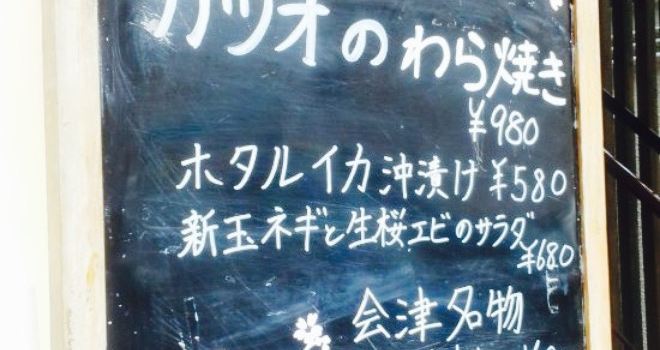 カツオのわら焼き
¥980
ホタルイカ沖漬け ¥580
新玉ネギと生桜エビのサラダ
¥680
会津名物